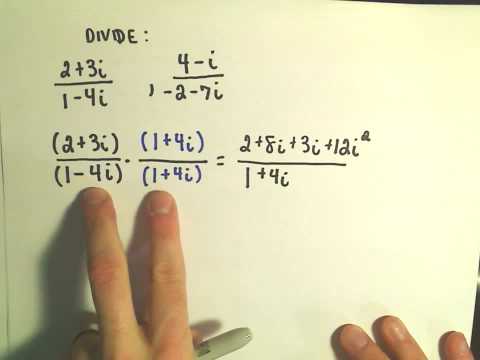 DIVIDE:
2+3i / 1-4i , 4-i / -2-7i
(2+3i) / (1-4i) · (1+4i) / (1+4i) = 2+8i+3i+12i² / 1+4i